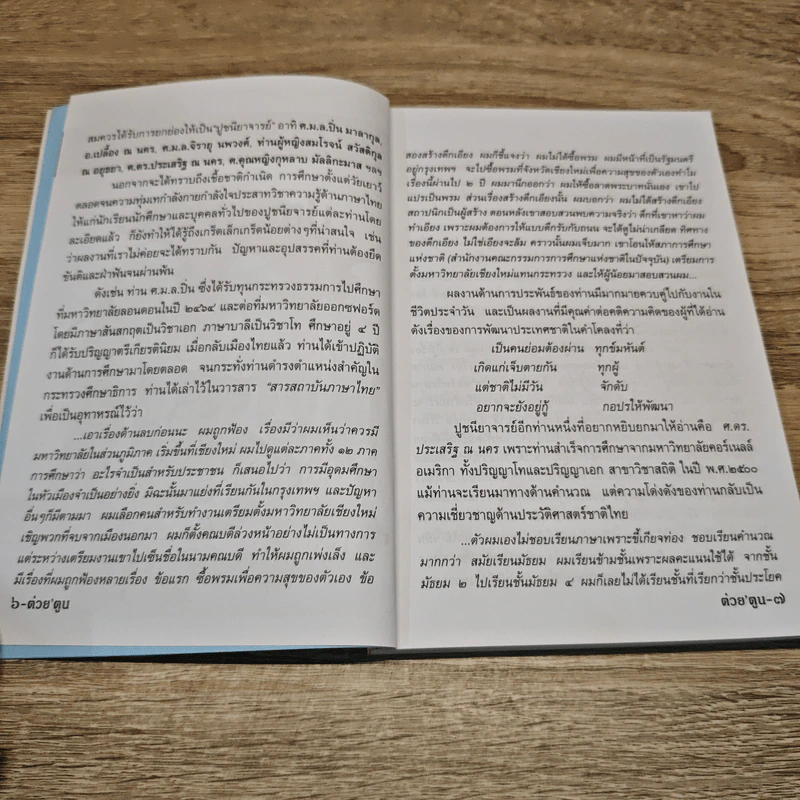 สมควรได้รับการยกย่องให้เป็น"ปูชนียาจารย์" อาทิ ศ.ม.ล.ปิ่น มาลากุล,
อ.เปลื้อง ณ นคร, ศ.ม.ล.จิรายุ นพวงศ์, ท่านผู้หญิงสมโรจน์ สวัสดิกุล
ณ อยุธยา, ศ.ดร.ประเสริฐ ณ นคร, ศ.คุณหญิงกุหลาบ มัลลิกะมาส ฯลฯ
นอกจากจะได้ทราบถึงเชื้อชาติกำเนิด การศึกษาตั้งแต่วัยเยาว์
ตลอดจนความทุ่มเทกำลังกายกำลังใจประสาทวิชาความรู้ด้านภาษาไทย
ให้แก่นักเรียนนักศึกษาและบุคคลทั่วไปของปูชนียาจารย์แต่ละท่านโดย
ละเอียดแล้ว ก็ยังทำให้ได้รู้ถึงเกร็ดเล็กเกร็ดน้อยต่างๆที่น่าสนใจ เช่น
ว่าผลงานที่เราไม่ค่อยจะได้ทราบกัน ปัญหาและอุปสรรคที่ท่านต้องยึด
ขันติและฝ่าฟันจนผ่านพ้น
ดังเช่น ท่าน ศ.ม.ล.ปิ่น ซึ่งได้รับทุนกระทรวงธรรมการไปศึกษา
ที่มหาวิทยาลัยลอนดอนในปี ๒๔๖๔ และต่อที่มหาวิทยาลัยออกซฟอร์ด
โดยมีภาษาสันสกฤตเป็นวิชาเอก ภาษาบาลีเป็นวิชาโท ศึกษาอยู่ ๔ ปี
ก็ได้รับปริญญาตรีเกียรตินิยม เมื่อกลับเมืองไทยแล้ว ท่านได้เข้าปฏิบัติ
งานด้านการศึกษามาโดยตลอด จนกระทั่งท่านดำรงตำแหน่งสำคัญใน
กระทรวงศึกษาธิการ ท่านได้เล่าไว้ในวารสาร "สารสถาบันภาษาไทย"
เพื่อเป็นอุทาหรณ์ไว้ว่า
...เอาเรื่องด้านลบก่อนนะ ผมถูกฟ้อง เรื่องมีว่าผมเห็นว่าควรมี
มหาวิทยาลัยในส่วนภูมิภาค เริ่มขึ้นที่เชียงใหม่ ผมไปดูแต่ละภาคทั้ง ๑๒ ภาค
การศึกษาว่า อะไรจำเป็นสำหรับประชาชน ก็เสนอไปว่า การมีอุดมศึกษา
ในหัวเมืองจำเป็นอย่างยิ่ง มิฉะนั้นมาแย่งที่เรียนกันในกรุงเทพฯ และปัญหา
อื่นๆก็มีตามมา ผมเลือกคนสำหรับทำงานเตรียมตั้งมหาวิทยาลัยเชียงใหม่
เชิญพวกที่จบจากเมืองนอกมา ผมก็ตั้งคณบดีล่วงหน้าอย่างไม่เป็นทางการ
แต่ระหว่างเตรียมงานเขาไปเซ็นชื่อในนามคณบดี ทำให้ผมถูกเพ่งเล็ง และ
มีเรื่องที่ผมถูกฟ้องหลายเรื่อง ข้อแรก ซื้อพรมเพื่อความสุขของตัวเอง ข้อ
๖-ต่วย'ตูน
สองสร้างตึกเอียง ผมก็ชี้แจงว่า ผมไม่ได้ซื้อพรม ผมมีหน้าที่เป็นรัฐมนตรี
อยู่กรุงเทพฯ จะไปซื้อพรมที่จังหวัดเชียงใหม่เพื่อความสุขของตัวเองทำไม
เรื่องนี้ผ่านไป ๒ ปี ผมมานึกออกว่า ผมให้ซื้อลาดพระบาทนั่นเอง เขาไป
แปรเป็นพรม ส่วนเรื่องสร้างตึกเอียงนั้น ผมบอกว่า ผมไม่ได้สร้างตึกเอียง
สถาปนิกเป็นผู้สร้าง ตอนหลังเขาสอบสวนพบความจริงว่า ตึกที่เขาหาว่าผม
ทำเอียง เพราะผมต้องการให้แบบตึกรับกับถนน จะได้ดูไม่น่าเกลียด ทิศทาง
ของตึกเอียง ไม่ใช่เอียงจะล้ม คราวนั้นผมเจ็บมาก เขาโอนให้สภาการศึกษา
แห่งชาติ (สำนักงานคณะกรรมการการศึกษาแห่งชาติในปัจจุบัน) เตรียมการ
ตั้งมหาวิทยาลัยเชียงใหม่แทนกระทรวง และให้ผู้น้อยมาสอบสวนผม...
ผลงานด้านการประพันธ์ของท่านมีมากมายควบคู่ไปกับงานใน
ชีวิตประจำวัน และเป็นผลงานที่มีคุณค่าต่อคติความคิดของผู้ที่ได้อ่าน
ดังเรื่องของการพัฒนาประเทศชาติในคำโคลงที่ว่า
เป็นคนย่อมต้องผ่าน ทุกข์มหันต์
เกิดแก่เจ็บตายกัน ทุกผู้
แต่ชาติไม่มีวัน จักดับ
อยากจะยังอยู่กู้ กอปรให้พัฒนา
ปูชนียาจารย์อีกท่านหนึ่งที่อยากหยิบยกมาให้อ่านคือ ศ.ดร.
ประเสริฐ ณ นคร เพราะท่านสำเร็จการศึกษาจากมหาวิทยาลัยคอร์เนลล์
อเมริกา ทั้งปริญญาโทและปริญญาเอก สาขาวิชาสถิติ ในปี พ.ศ.๒๕๐๐
แม้ท่านจะเรียนมาทางด้านคำนวณ แต่ความโด่งดังของท่านกลับเป็น
ความเชี่ยวชาญด้านประวัติศาสตร์ชาติไทย
...ตัวผมเองไม่ชอบเรียนภาษาเพราะขี้เกียจท่อง ชอบเรียนคำนวณ
มากกว่า สมัยเรียนมัธยม ผมเรียนข้ามชั้นเพราะผลคะแนนใช้ได้ จากชั้น
มัธยม ๒ ไปเรียนชั้นมัธยม ๔ ผมก็เลยไม่ได้เรียนชั้นที่เรียกว่าชั้นประโยค
ต่วย'ตูน-๗